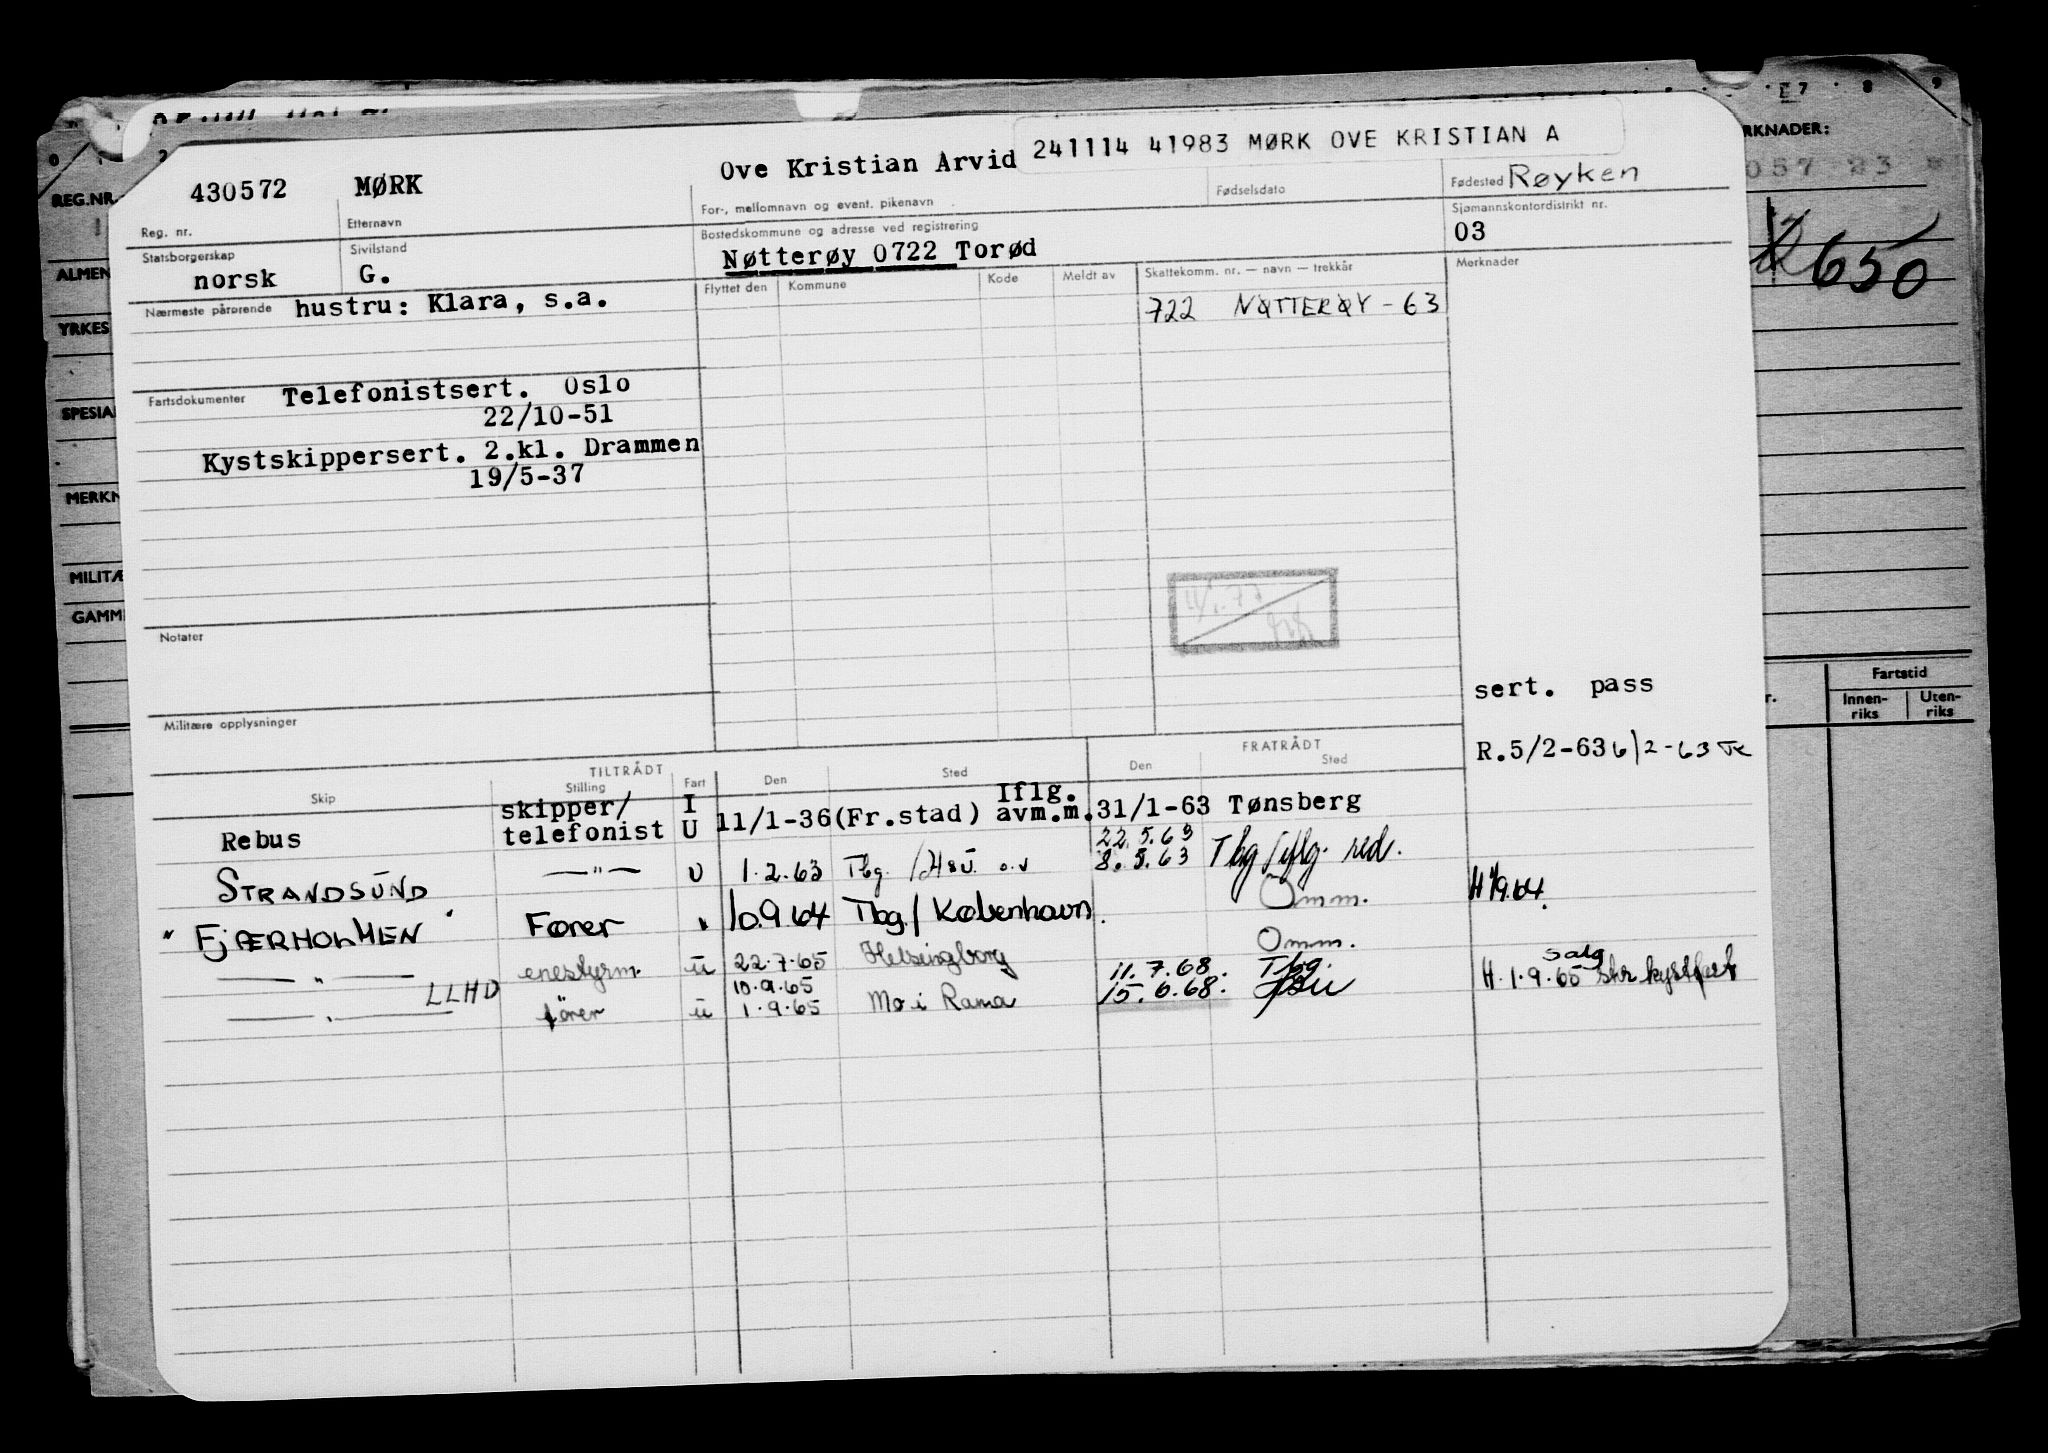 0 1 2 7 8 9
REG.NR.
RKNADER:
057 83
650
ALMEN
YRKES
SPESIA
MERKN
MILITÆ
GAMM
Fartstid
r. Innen-riks Uten-riks
241114 41983 MØRK OVE KRISTIAN A
430572 MØRK Ove Kristian Arvid
Reg. nr. Etternavn For-, mellomnavn og event. pikenavn Fødselsdato Fødested Røyken
Statsborgerskap Sivilstand Bostedskommune og adresse ved registrering Sjømannskontordistrikt nr.
norsk G. Nøtterøy 0722 Torød 03
Nærmeste pårørende hustru: Klara, s.a. Flyttet den Kommune Kode Meldt av Skattekomm. nr. — navn — trekkår Merknader
722 NØTTERØY - 63
Fartsdokumenter Telefonistsert. Oslo
22/10-51
Kystskippersert. 2.kl. Drammen
19/5-37
Notater
Militære opplysninger
sert. pass
R.5/2-63 6/2-63
TILTRÅDT FRATRÅDT
Skip Stilling Fart Den Sted Den Sted
Rebus skipper/ telefonist I U 11/1-36 (Fr.stad) Iflg. avm.m. 31/1-63 Tønsberg
22.5.63
STRANDSUND —"— U 1.2.63 Tbg. 8.5.63 Tbg iflg. red.
Omm.
"FJÆRHOLMEN" Fører " 10.9.64 Tbg./København.
Omm.
—"— enestyrm. u 22.7.65 Helsingborg 11.7.68. Tbg.
LLHD 10.9.65 15.6.68.
—"— fører u 1.9.65 Mo i Rama
H. 1.9.65 salg